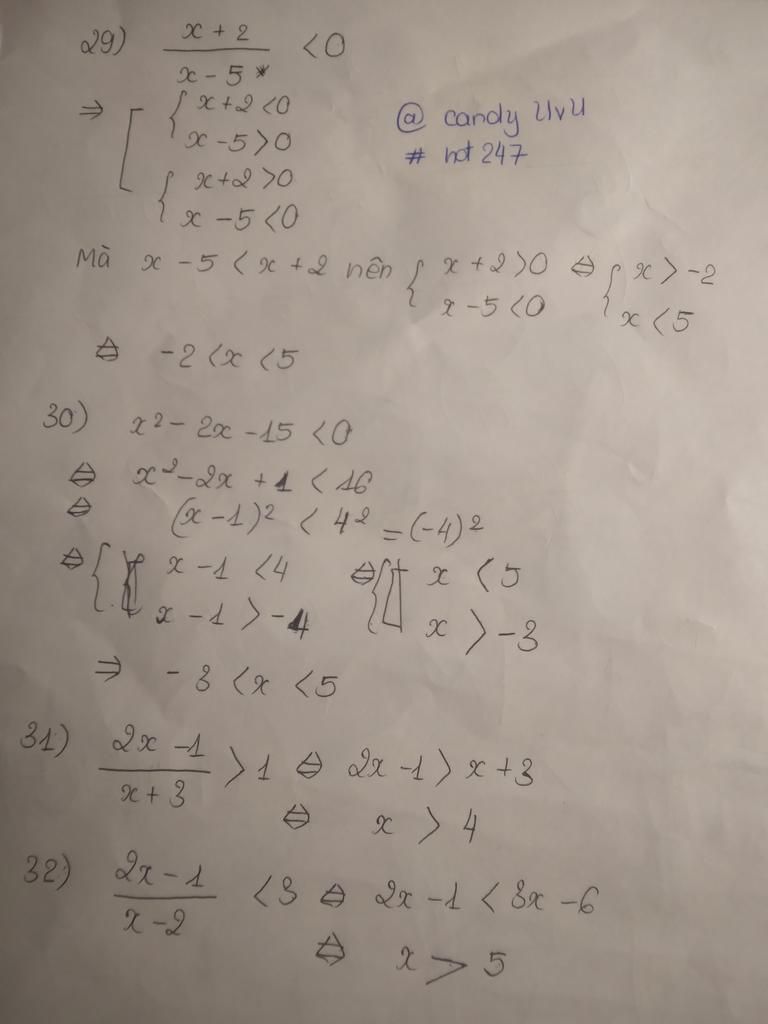 29) (x + 2)/(x - 5) < 0
⇒ [ { x + 2 < 0
x - 5 > 0
{ x + 2 > 0
x - 5 < 0
@ candy UvU
# hot 247
Mà x - 5 < x + 2 nên { x + 2 > 0 ⇔ { x > -2
x - 5 < 0 x < 5
⇔ -2 < x < 5
30) x² - 2x - 15 < 0
⇔ x² - 2x + 1 < 16
⇔ (x - 1)² < 4² = (-4)²
⇔ { x - 1 < 4 ⇔ { x < 5
x - 1 > -4 x > -3
⇒ -3 < x < 5
31) (2x - 1)/(x + 3) > 1 ⇔ 2x - 1 > x + 3
⇔ x > 4
32) (2x - 1)/(x - 2) < 3 ⇔ 2x - 1 < 3x - 6
⇔ x > 5